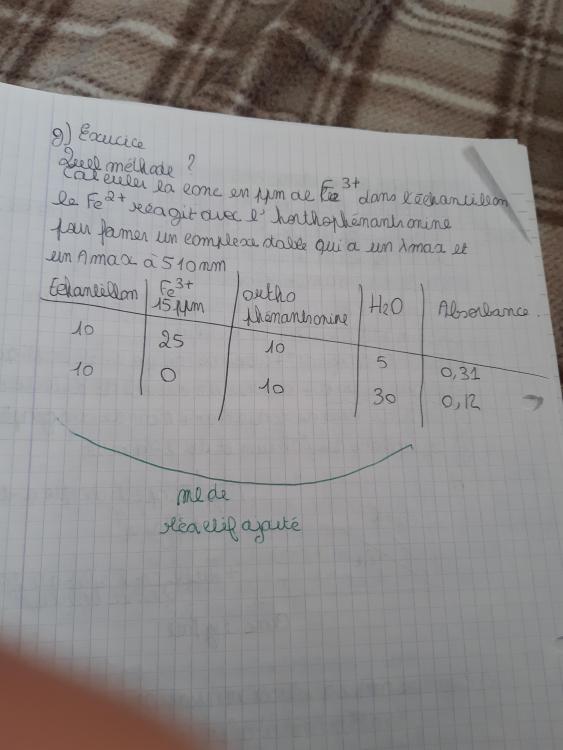 g) Exercice
Quel méthode ?
Calculer la conc en ppm de Fe 3+ dans l'échantillon
le Fe2+ réagit avec l' horthophénantronine
pour former un complexe stable qui a un λmax et
un Amax à 510nm
Echantillon | Fe3+ 15 ppm | ortho phénantronine | H2O | Absorbance.
10 | 25 | 10 | 5 | 0,31
10 | 0 | 10 | 30 | 0,12
ml de
réactif ajouté